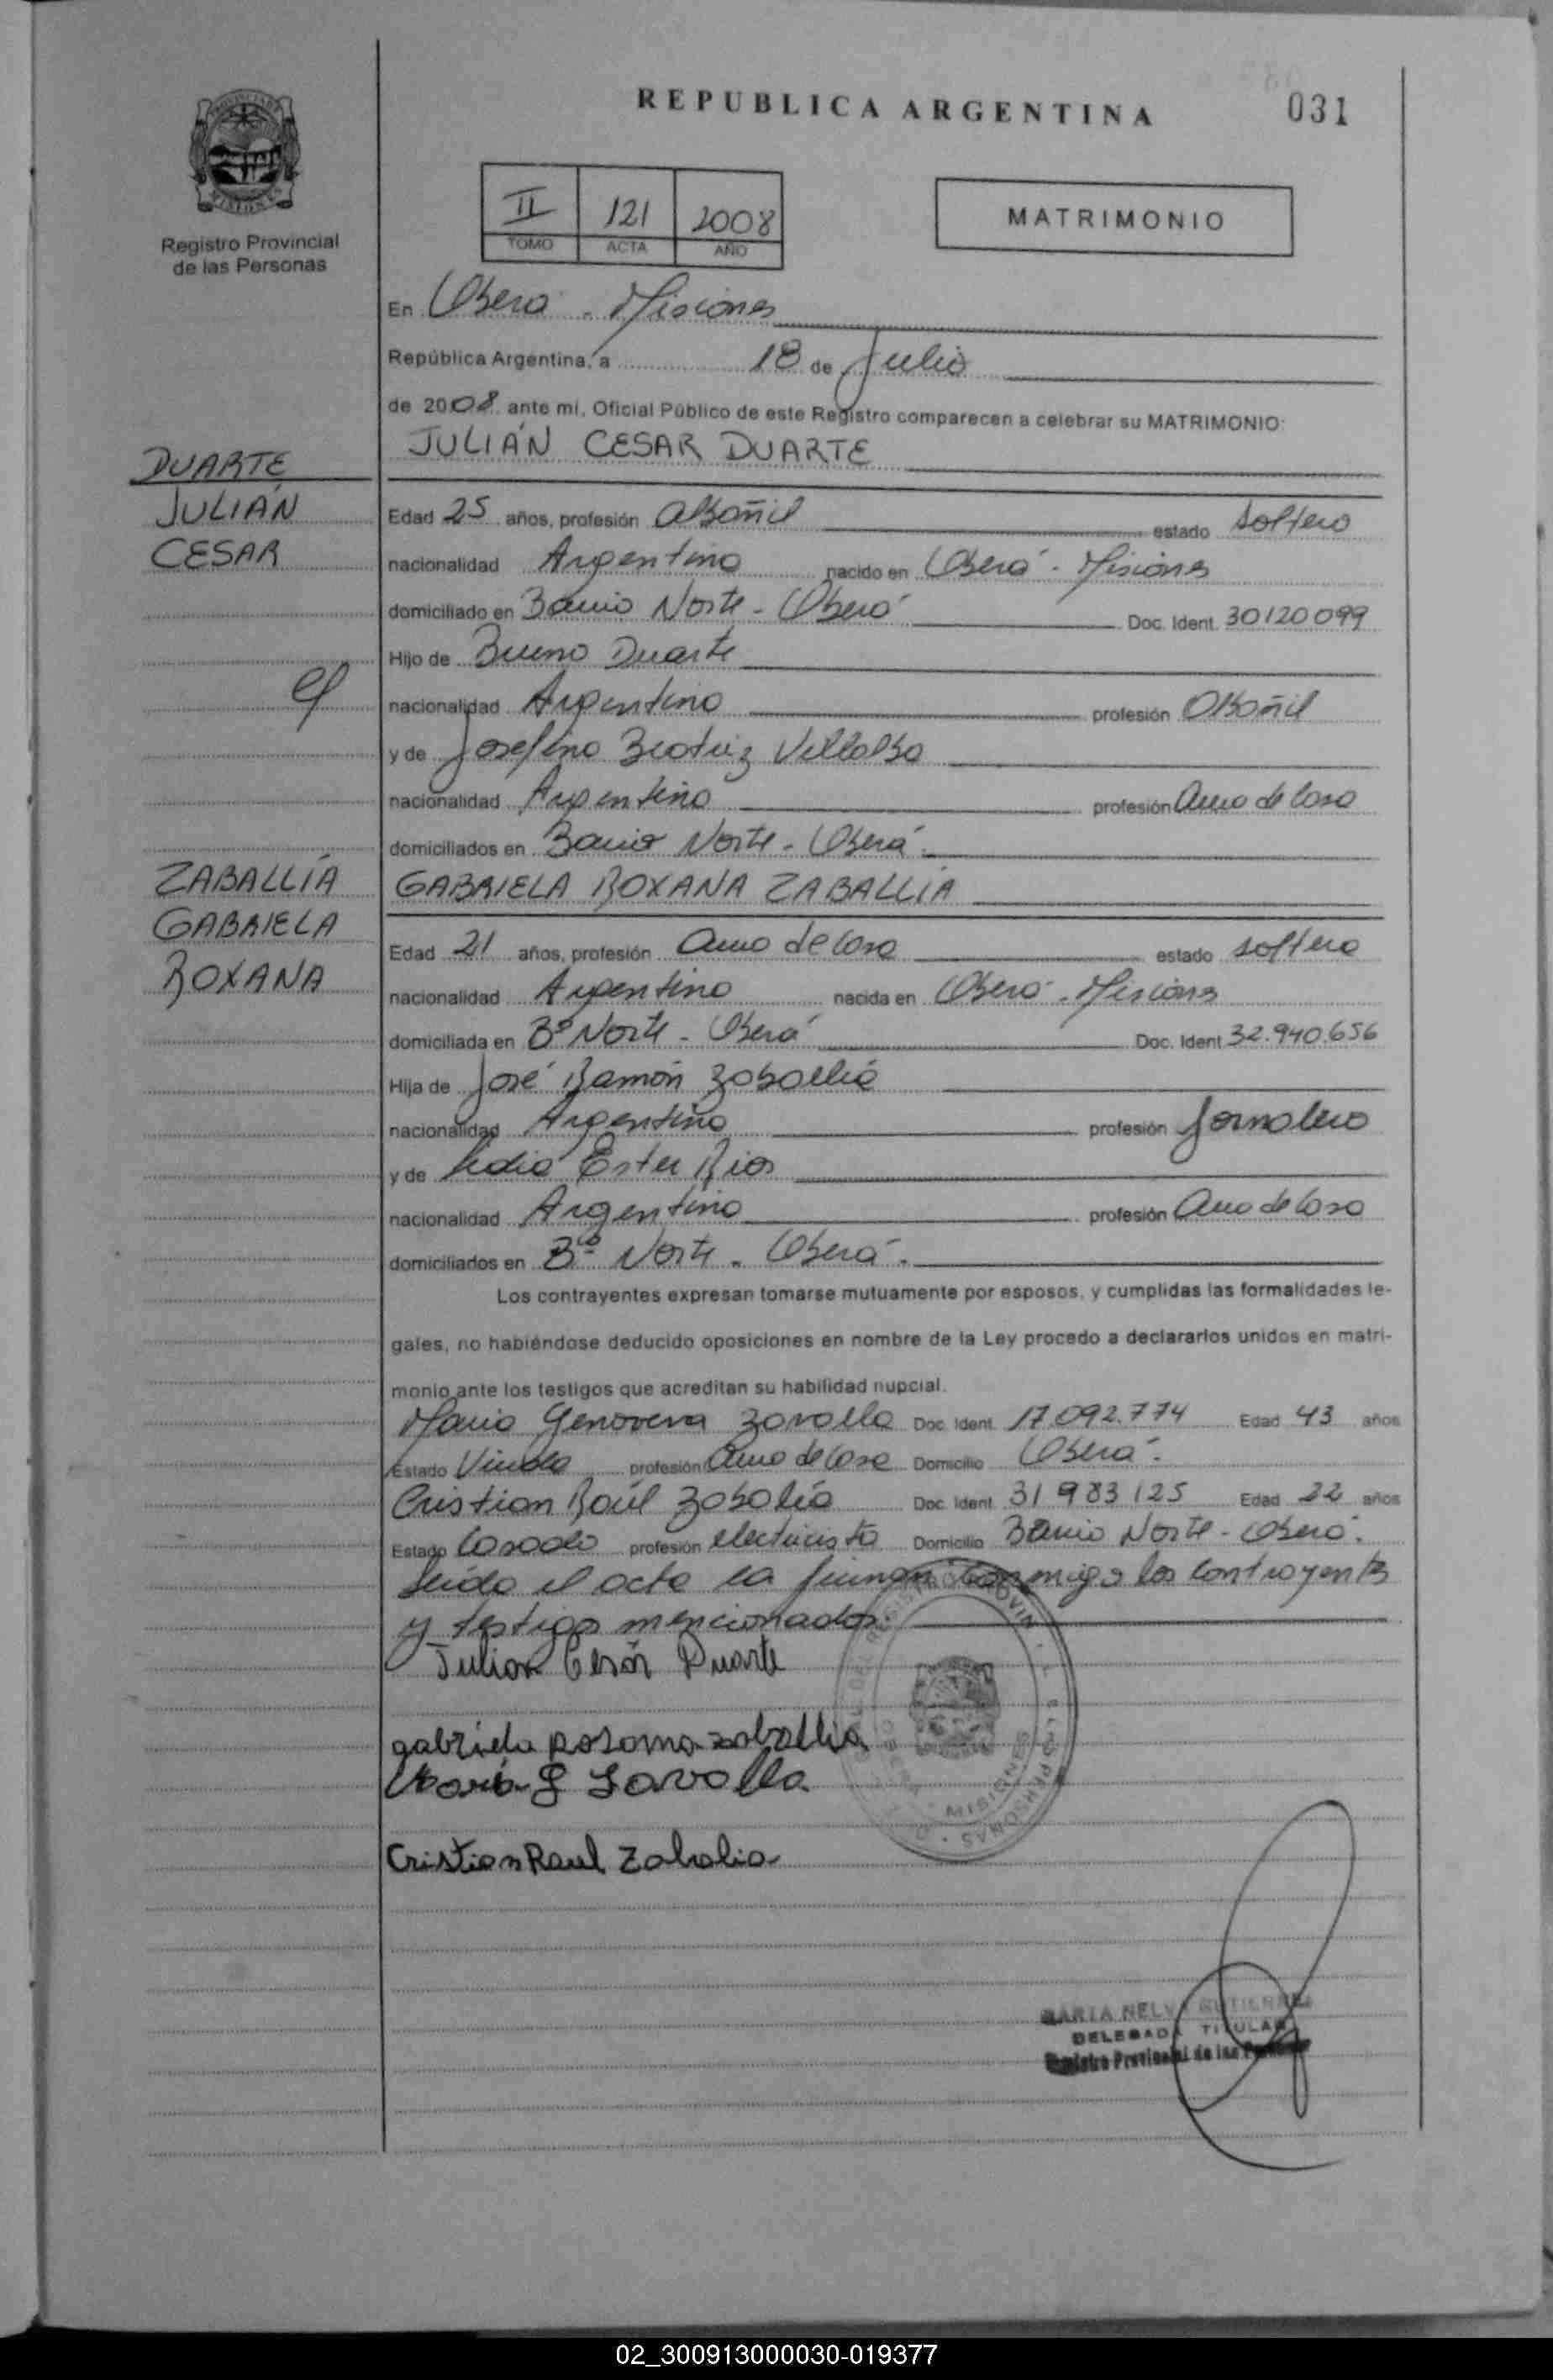 REPUBLICA ARGENTINA
031
Registro Provincial
de las Personas
II 121 2008
TOMO ACTA AÑO
MATRIMONIO
En Oberá - Misiones
República Argentina, a 18 de Julio
de 2008 ante mi, Oficial Público de este Registro comparecen a celebrar su MATRIMONIO:
DUARTE
JULIÁN
CESAR
JULIÁN CESAR DUARTE
Edad 25 años, profesión albañil estado soltero
nacionalidad Argentina nacido en Oberá - Misiones
domiciliado en Barrio Norte - Oberá Doc. Ident. 30120099
Hijo de Bueno Duarte
nacionalidad Argentina profesión albañil
y de Josefina Beatriz Villalba
nacionalidad Argentina profesión ama de casa
domiciliados en Barrio Norte - Oberá.
ZABALLÍA
GABRIELA
ROXANA
GABRIELA ROXANA ZABALLÍA
Edad 21 años, profesión ama de casa estado soltera
nacionalidad Argentina nacida en Oberá - Misiones
domiciliada en Bº Norte - Oberá Doc. Ident. 32.940.656
Hija de José Ramón Zaballía
nacionalidad Argentina profesión Jornalero
y de Lidia Ester Rios
nacionalidad Argentina profesión ama de casa
domiciliados en Bº Norte - Oberá.
Los contrayentes expresan tomarse mutuamente por esposos, y cumplidas las formalidades le-
gales, no habiéndose deducido oposiciones en nombre de la Ley procedo a declararlos unidos en matri-
monio ante los testigos que acreditan su habilidad nupcial.
Maria Genoveva Zavalla Doc. Ident. 17.092.774 Edad 43 años
Estado Viuda profesión ama de casa Domicilio Oberá.
Cristian Raúl Zabalía Doc. Ident. 31 983 125 Edad 22 años
Estado Casado profesión electricista Domicilio Barrio Norte - Oberá.
Leída el acta la firman conmigo los contrayentes
y testigos mencionados.
Julian Cesár Duarte
gabriela rosana zaballia
Maria G Zavalla
Cristian Raul Zabalia
MISIONES
MARTA NELVA GUTIERREZ
DELEGADA TITULAR
Registro Provincial de las Personas
02_300913000030-019377